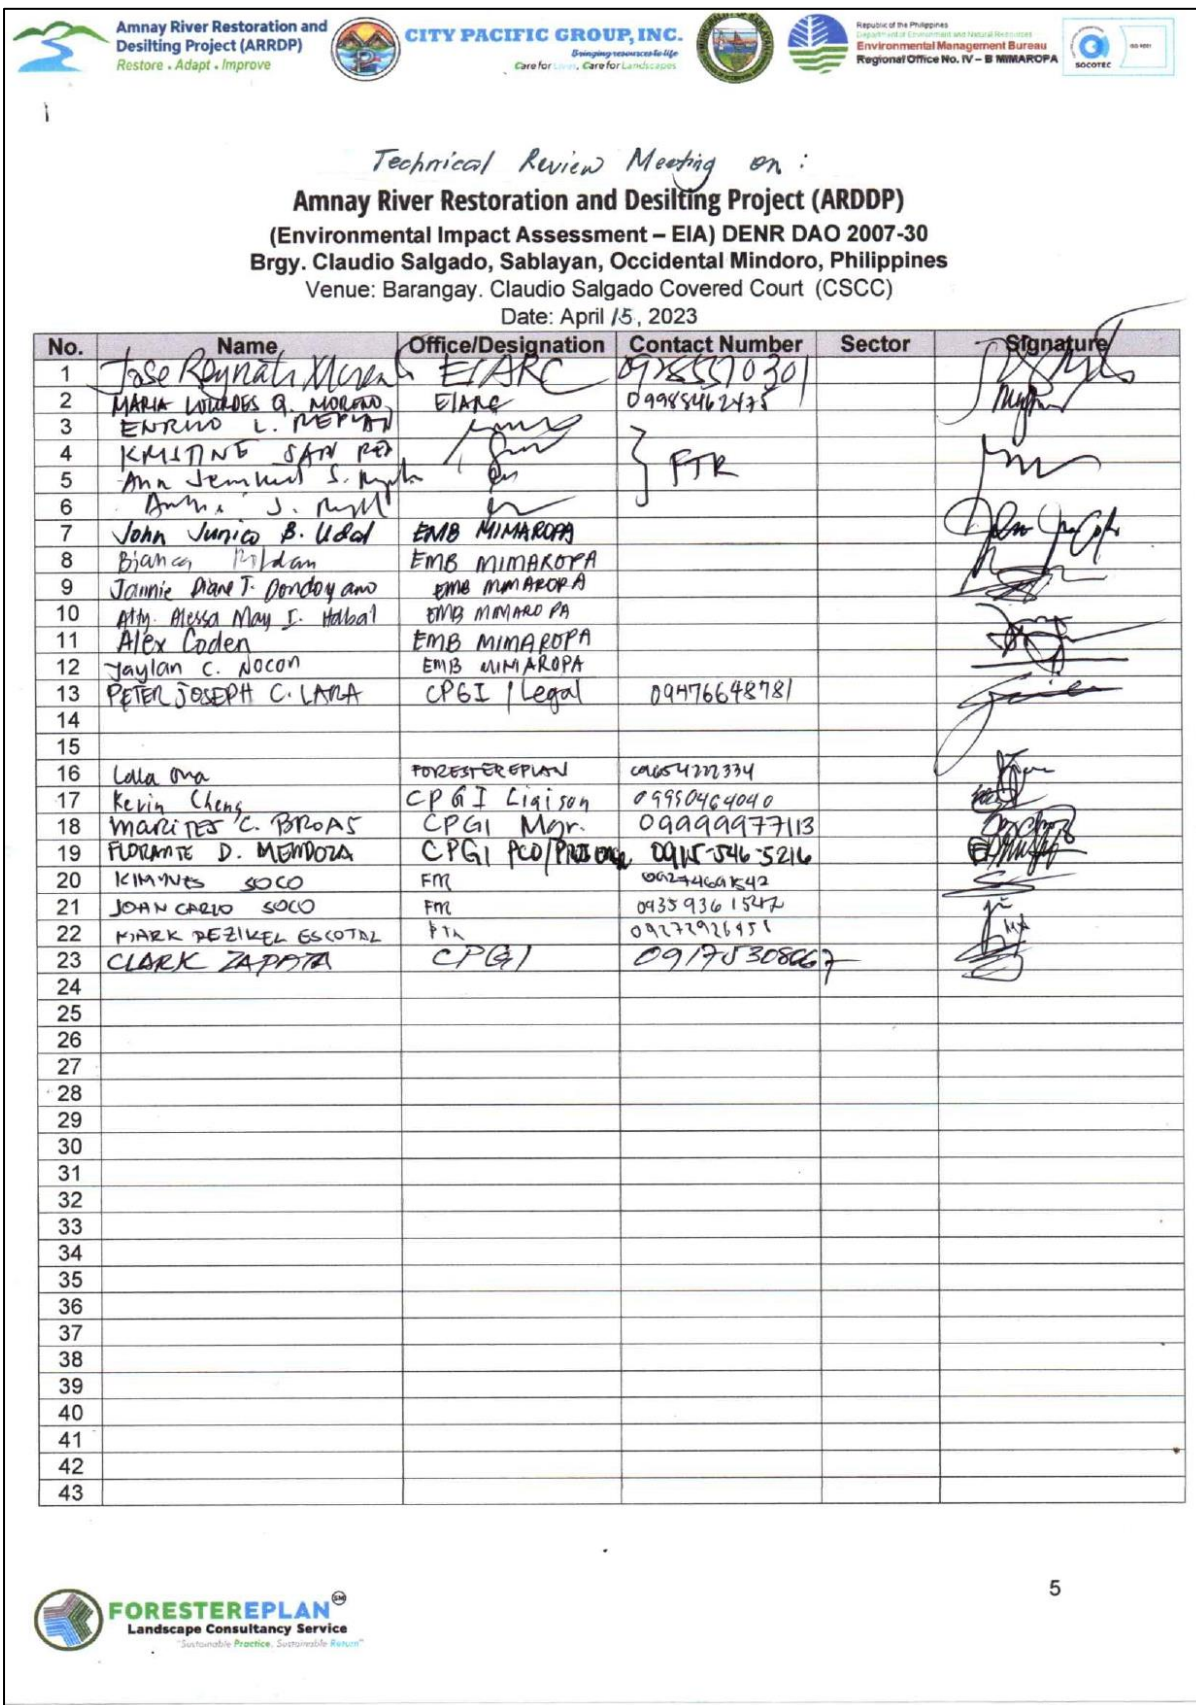 Amnay River Restoration and
Desilting Project (ARRDP)
Restore . Adapt . Improve
CITY PACIFIC GROUP, INC.
Bringing resources to life
Care for Lives, Care for Landscapes
Republic of the Philippines
Department of Environment and Natural Resources
Environmental Management Bureau
Regional Office No. IV – B MIMAROPA
SOCOTEC
ISO 9001
Technical Review Meeting on :
Amnay River Restoration and Desilting Project (ARDDP)
(Environmental Impact Assessment – EIA) DENR DAO 2007-30
Brgy. Claudio Salgado, Sablayan, Occidental Mindoro, Philippines
Venue: Barangay. Claudio Salgado Covered Court (CSCC)
Date: April 15, 2023
No. Name Office/Designation Contact Number Sector Signature
1 Jose Reynato EIARC
2 MARIA LOURDES Q. MORENO EIARC 09985462475
3 L.
4 KRISTINE SAN FTR
5 Ann S.
6 J.
7 John Junico B. Udal EMB MIMAROPA
8 Bianca Roldan EMB MIMAROPA
9 Jannie Diane T. Dondoyano EMB MIMAROPA
10 Atty. Alessa May I. Habal EMB MIMAROPA
11 Alex Coden EMB MIMAROPA
12 Jaylan C. Nocon EMB MIMAROPA
13 PETER JOSEPH C. LARA CPGI / Legal 09476648781
14
15
16 Lala Ona FORESTEREPLAN
17 Kevin Cheng CPGI Liaison 09950464040
18 MARITES C. BROAS CPGI Mgr. 09999977113
19 FLORANTE D. MENDOZA CPGI PCO/ 0915-546-5216
20 SOCO
21 JOAN CARLO SOCO
22 MARK
23 CLARK ZAPATA CPGI 09175308067
24
25
26
27
28
29
30
31
32
33
34
35
36
37
38
39
40
41
42
43
5
FORESTEREPLAN SM
Landscape Consultancy Service
"Sustainable Practice, Sustainable Return"